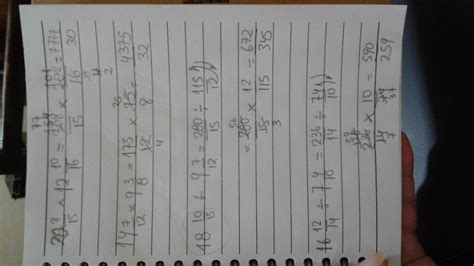 20 8/15 × 12 10/16 = 308/15 × 202/16 = 7777/30
14 7/12 × 9 3/8 = 175/12 × 75/8 = 4375/32
18 10/15 ÷ 9 7/12 = 280/15 ÷ 115/12
= 280/15 × 12/115 = 672/345
16 12/14 ÷ 7 4/10 = 236/14 ÷ 74/10
236/14 × 10/74 = 590/259